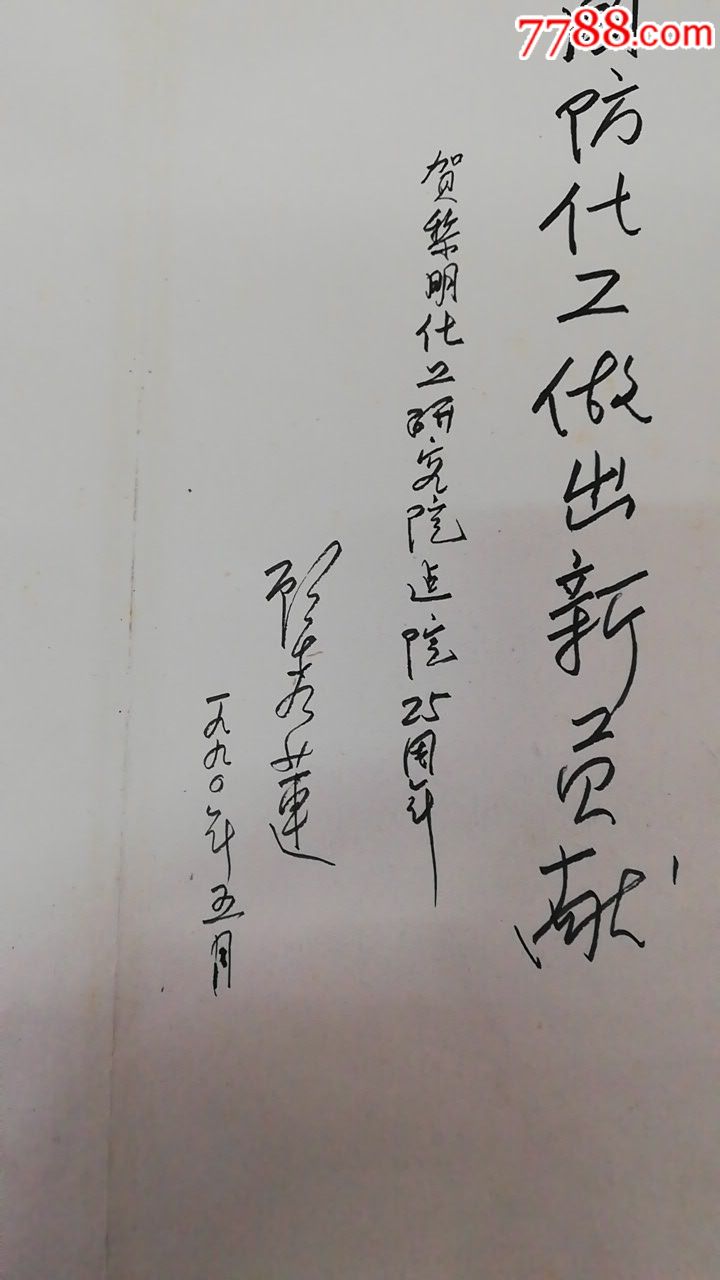 7788.com
国防化工做出新贡献
贺黎明化工研究院建院25周年
顾秀莲
一九九〇年五月